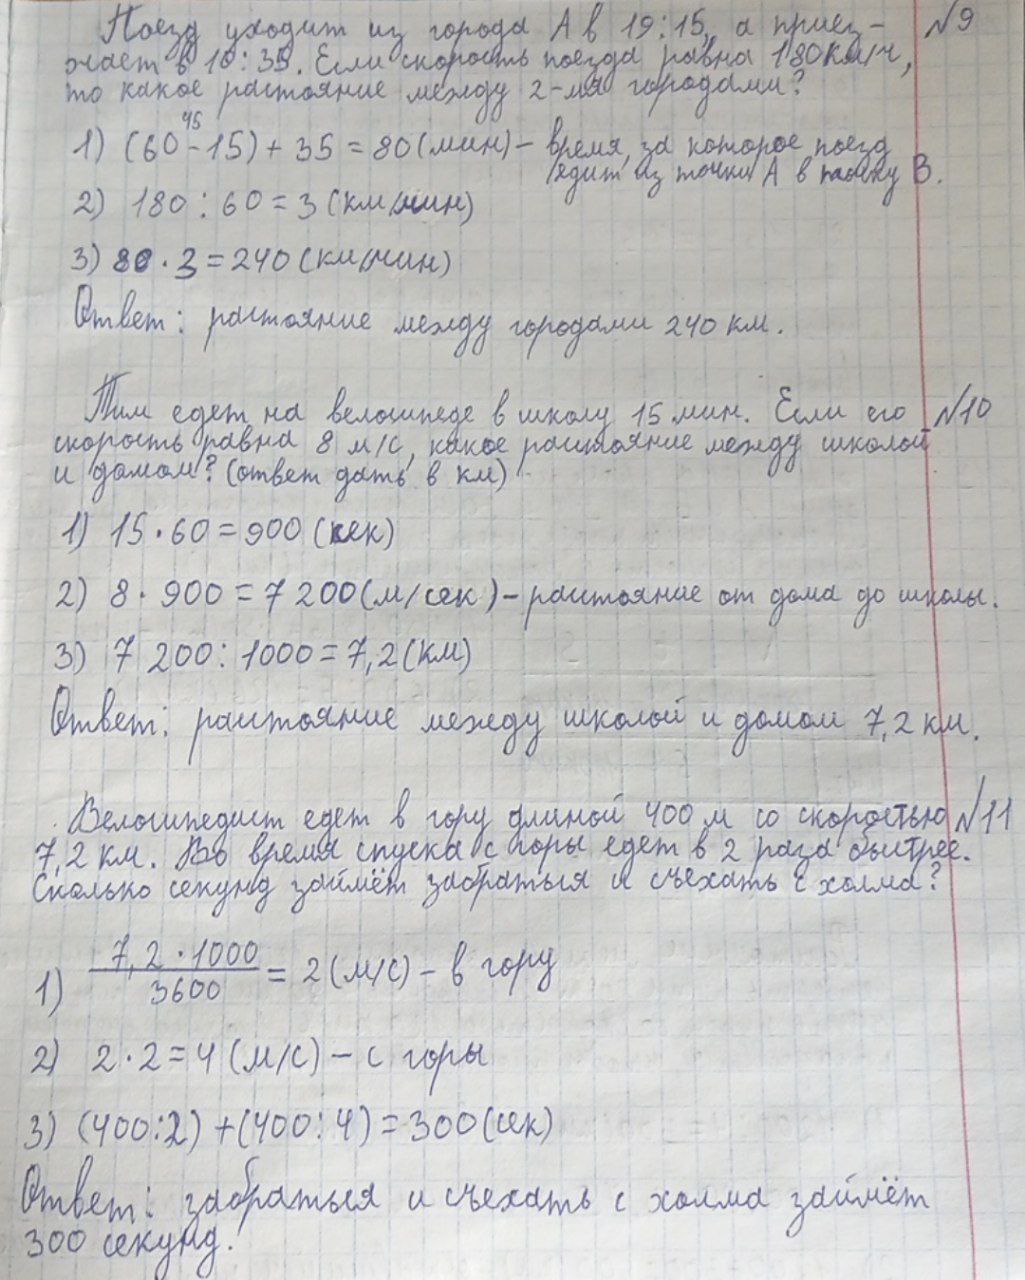 Поезд уходит из города А в 19:15, а приез- №9
жает в 10:35. Если скорость поезда равна 180км/ч,
то какое растояние между 2-мя городами?
45
1) (60-15) + 35 = 80 (мин) - время, за которое поезд
едит из точки А в точку В.
2) 180 : 60 = 3 (км/мин)
3) 80 · 3 = 240 (км/мин)
Ответ: растояние между городами 240 км.
Тим едет на велосипеде в школу 15 мин. Если его №10
скорость равна 8 м/с, какое растояние между школой
и домом? (ответ дать в км)
1) 15 · 60 = 900 (сек)
2) 8 · 900 = 7 200 (м/сек) - растояние от дома до школы.
3) 7 200 : 1000 = 7,2 (км)
Ответ: растояние между школой и домом 7,2 км.
Велосипедист едет в гору длиной 400 м со скоростью №11
7,2 км. Во время спуска с горы едет в 2 раза быстрее.
Сколько секунд займёт забраться и съехать с холма?
1) 7,2 · 1000 / 3600 = 2 (м/с) - в гору
2) 2 · 2 = 4 (м/с) - с горы
3) (400:2) + (400:4) = 300 (сек)
Ответ: забраться и съехать с холма займёт
300 секунд.